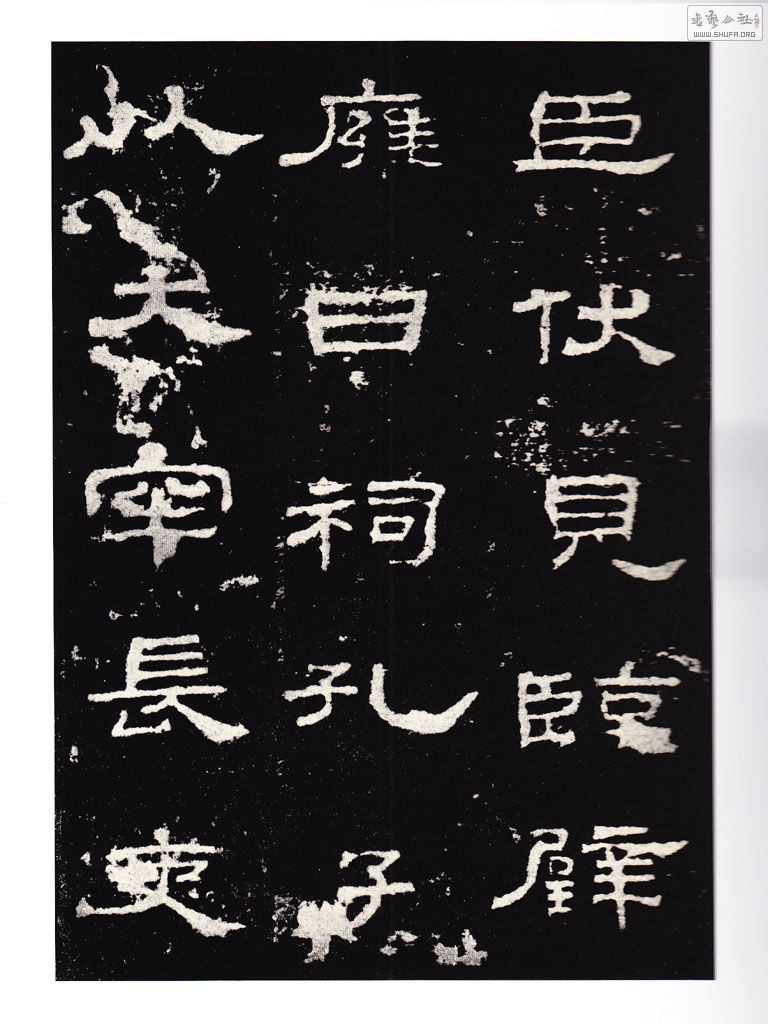 臣伏見臨辟
雍日祠孔子
以大牢長吏
書藝公社
WWW.SHUFA.ORG